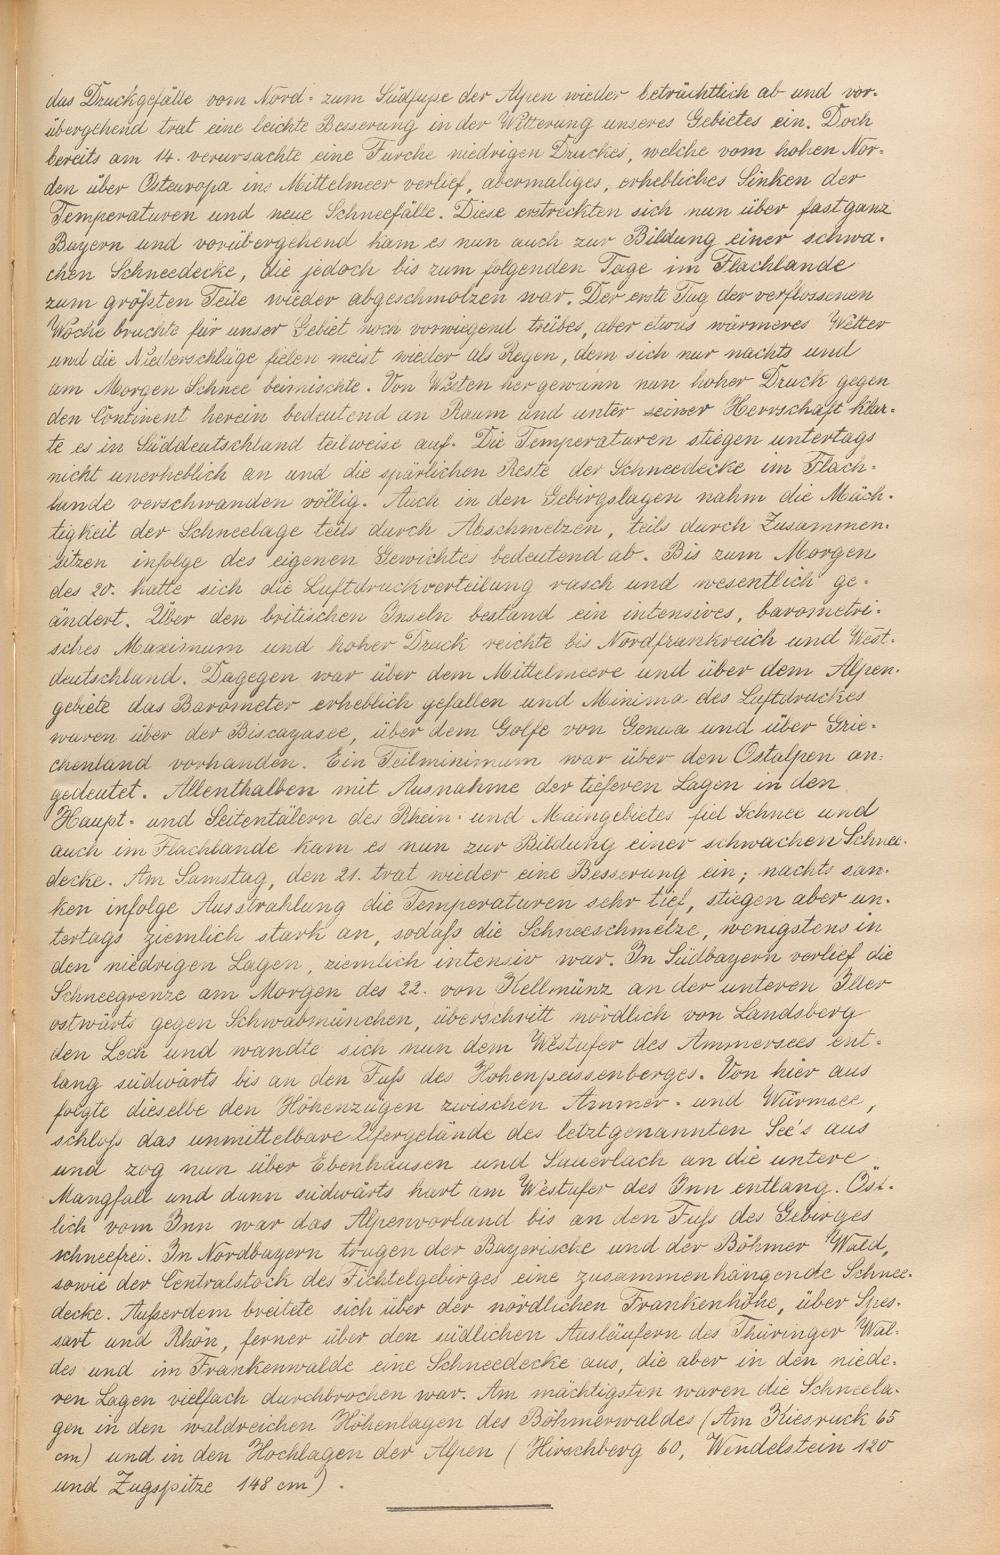 das Druckgefälle vom Nord- zum Südfuße der Alpen wieder beträchtlich ab und vor-
übergehend trat eine leichte Besserung in der Witterung unseres Gebietes ein. Doch
bereits am 14. verursachte eine Furche niedrigen Druckes, welche vom hohen Nor-
den über Osteuropa ins Mittelmeer verlief, abermaliges, erhebliches Sinken der
Temperaturen und neue Schneefälle. Diese erstreckten sich nun über fast ganz
Bayern und vorübergehend kam es nun auch zur Bildung einer schwa-
chen Schneedecke, die jedoch bis zum folgenden Tage im Flachlande
zum größten Teile wieder abgeschmolzen war. Der erste Tag der verflossenen
Woche brachte für unser Gebiet noch vorwiegend trübes, aber etwas wärmeres Wetter
und die Niederschläge fielen meist wieder als Regen, dem sich nur nachts und
am Morgen Schnee beimischte. Von Westen her gewann nun hoher Druck gegen
den Continent herein bedeutend an Raum und unter seiner Herrschaft klär-
te es in Süddeutschland teilweise auf. Die Temperaturen stiegen untertags
nicht unerheblich an und die spärlichen Reste der Schneedecke im Flach-
lande verschwanden völlig. Auch in den Gebirgslagen nahm die Mäch-
tigkeit der Schneelage teils durch Abschmelzen, teils durch Zusammen-
sitzen infolge des eigenen Gewichtes bedeutend ab. Bis zum Morgen
des 20. hatte sich die Luftdruckverteilung rasch und wesentlich ge-
ändert. Über den britischen Inseln bestand ein intensives, barometri-
sches Maximum und hoher Druck reichte bis Nordfrankreich und West-
deutschland. Dagegen war über dem Mittelmeere und über dem Alpen-
gebiete das Barometer erheblich gefallen und Minima des Luftdruckes
waren über der Biscayasee, über dem Golfe von Genua und über Grie-
chenland vorhanden. Ein Teilminimum war über den Ostalpen an-
gedeutet. Allenthalben mit Ausnahme der tieferen Lagen in den
Haupt- und Seitentälern des Rhein- und Maingebietes fiel Schnee und
auch im Flachlande kam es nun zur Bildung einer schwachen Schnee-
decke. Am Samstag, den 21. trat wieder eine Besserung ein; nachts san-
ken infolge Ausstrahlung die Temperaturen sehr tief, stiegen aber un-
tertags ziemlich stark an, sodaß die Schneeschmelze, wenigstens in
den niedrigen Lagen, ziemlich intensiv war. In Südbayern verlief die
Schneegrenze am Morgen des 22. von Kellmünz an der unteren Iller
ostwärts gegen Schwabmünchen, überschritt nördlich von Landsberg
den Lech und wandte sich nun dem Westufer des Ammersees ent-
lang südwärts bis an den Fuß des Hohenpeissenberges. Von hier aus
folgte dieselbe den Höhenzügen zwischen Ammer- und Würmsee,
schloß das unmittelbare Ufergelände des letztgenannten See's aus
und zog nun über Ebenhausen und Sauerlach an die untere
Mangfall und dann südwärts hart am Westufer des Inn entlang. Öst-
lich vom Inn war das Alpenvorland bis an den Fuß des Gebirges
schneefrei. In Nordbayern trugen der Bayerische und der Böhmer Wald,
sowie der Centralstock des Fichtelgebirges eine zusammenhängende Schnee-
decke. Außerdem breitete sich über der nördlichen Frankenhöhe, über Spes-
sart und Rhön, ferner über den südlichen Ausläufern des Thüringer Wal-
des und im Frankenwalde eine Schneedecke aus, die aber in den niede-
ren Lagen vielfach durchbrochen war. Am mächtigsten waren die Schneela-
gen in den waldreichen Höhenlagen des Böhmerwaldes (Am Kiesruck 65
cm) und in den Hochlagen der Alpen (Hirschberg 60, Wendelstein 120
und Zugspitze 148 cm).